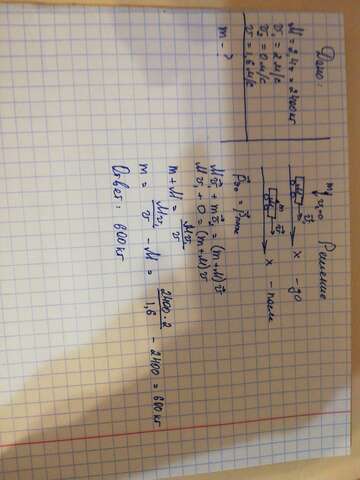 Дано:
M = 2,4т = 2400кг
v₁ = 2 м/с
v₂ = 0 м/с
v = 1,6 м/с
m - ?
Решение
x - до
m
x - после
Mv⃗₁ + mv⃗₂ = (m+M)v⃗
Mv₁ + 0 = (m+M)v
m+M = Mv₁/v
m = Mv₁/v - M = 2400·2/1,6 - 2400 = 600кг
Ответ: 600кг